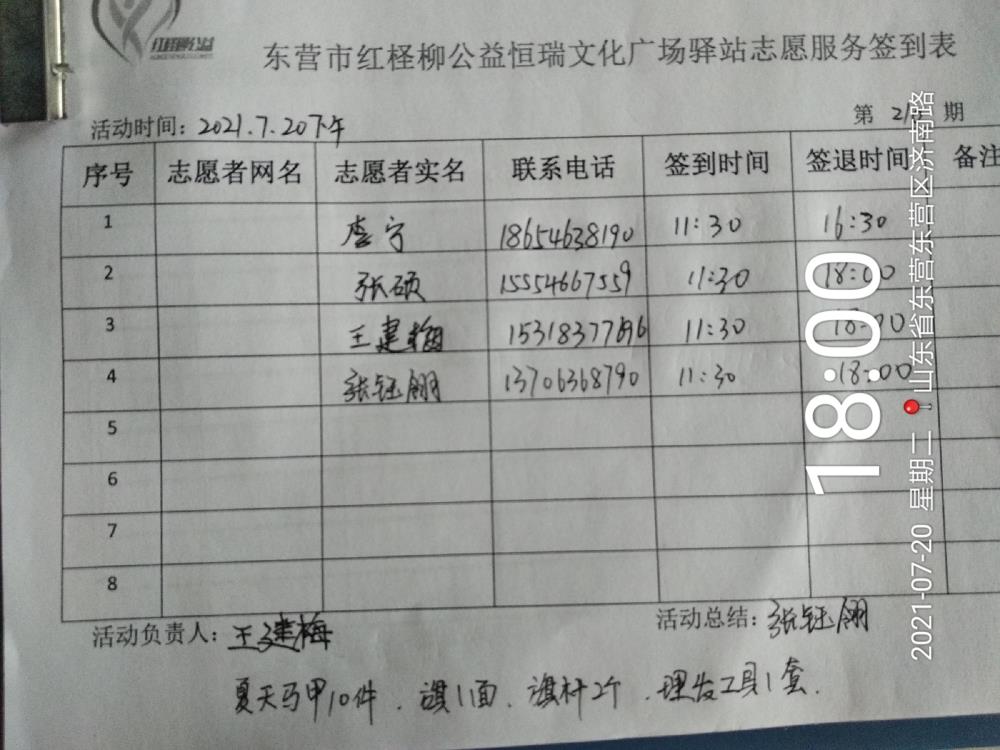 红柽柳公益
东营市红柽柳公益恒瑞文化广场驿站志愿服务签到表
活动时间：2021.7.20下午 第 期
序号 志愿者网名 志愿者实名 联系电话 签到时间 签退时间 备注
1 李宁 18654638190 11:30 16:30
2 张硕 15554667559 11:30 18:00
3 王建梅 11:30 18:00
4 张钰翎 13706368790 11:30 18:00
5
6
7
8
活动负责人：王建梅 活动总结：张钰翎
夏天马甲10件．旗1面．旗杆2个．理发工具1套．
18:00
2021-07-20 星期二 山东省东营东营区济南路